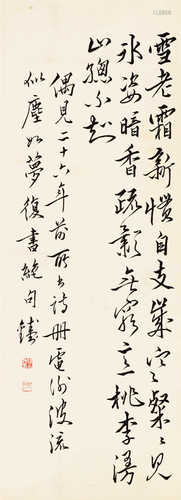 雪老霜新慣自支歲寒粲〻見
冰姿暗香疏影無窮意桃李漫
山總不知
偶見二十六年前所書詩冊電謝波流
似塵如夢復書絕句